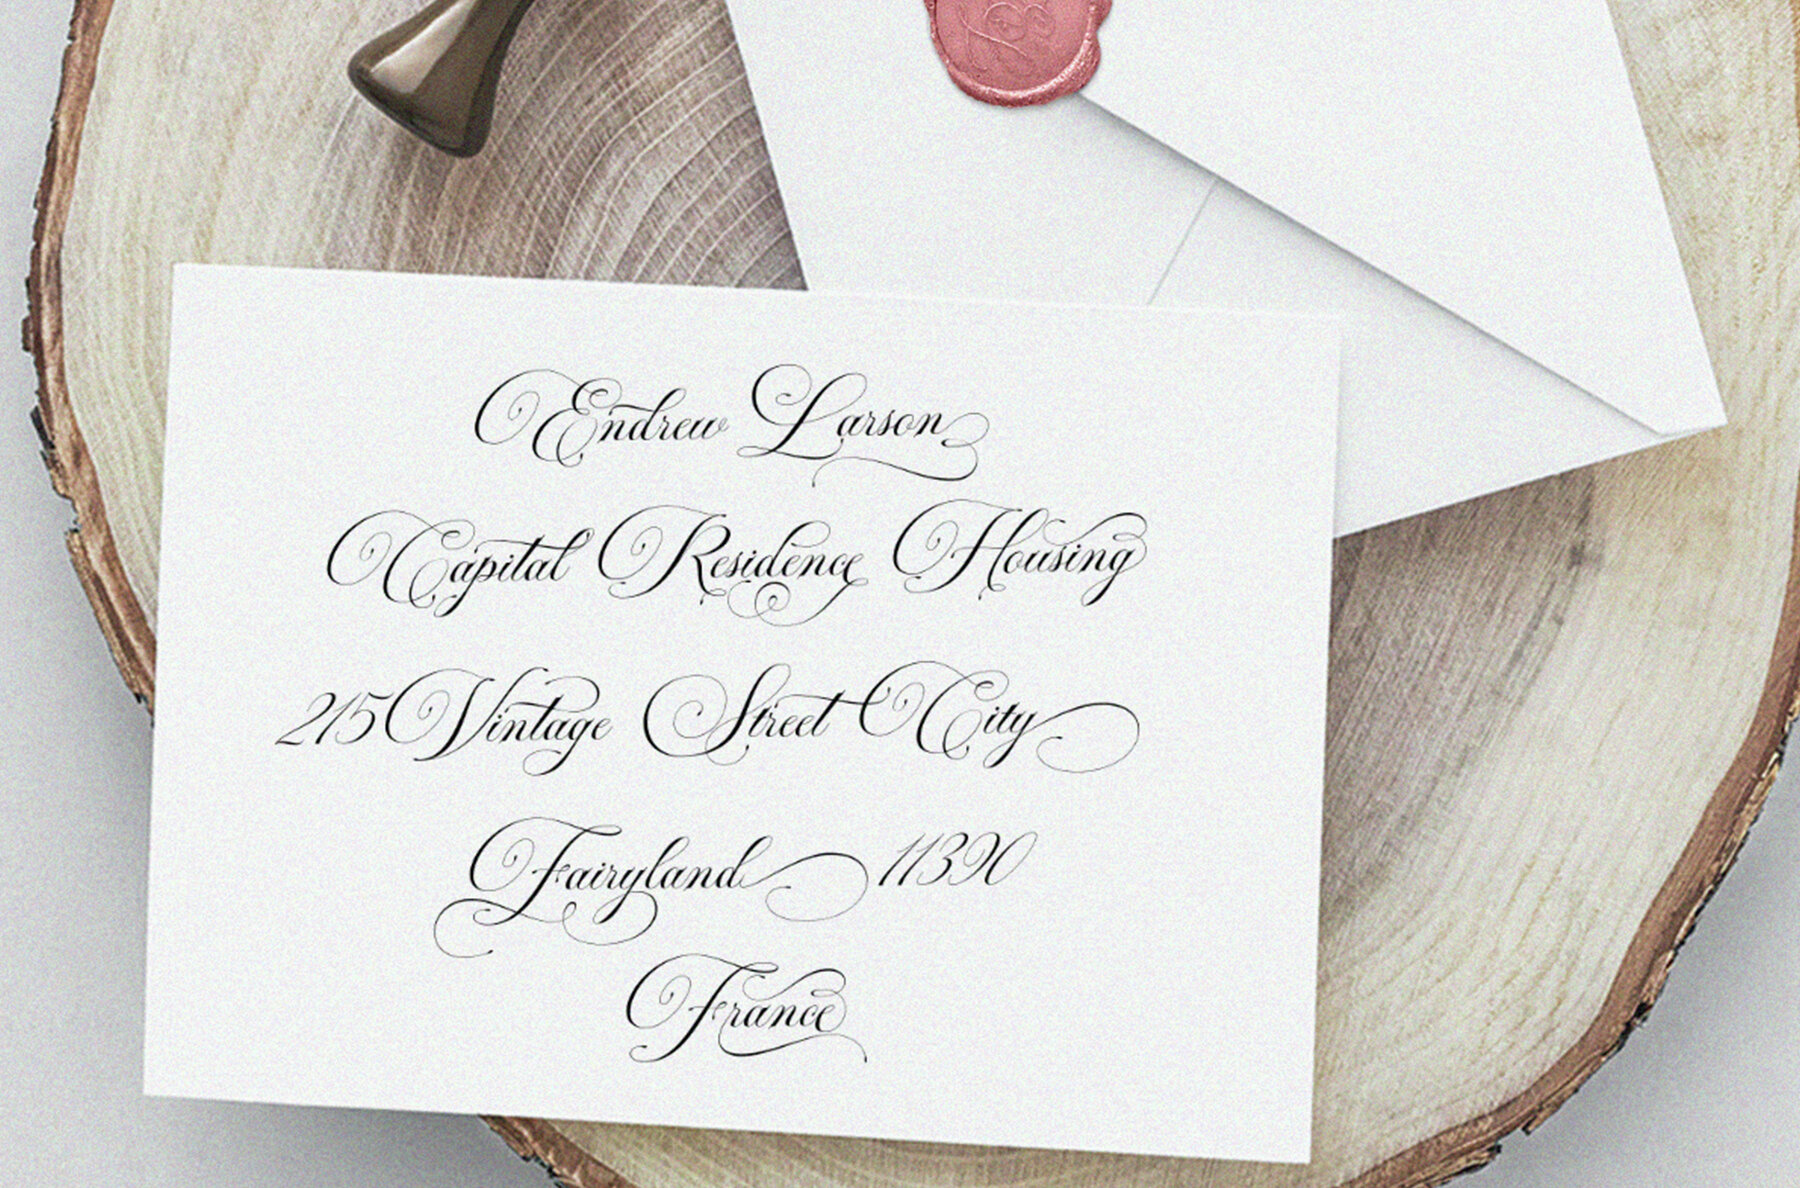 Endrew Larson
Capital Residence Housing
215 Vintage Street City
Fairyland 11390
France